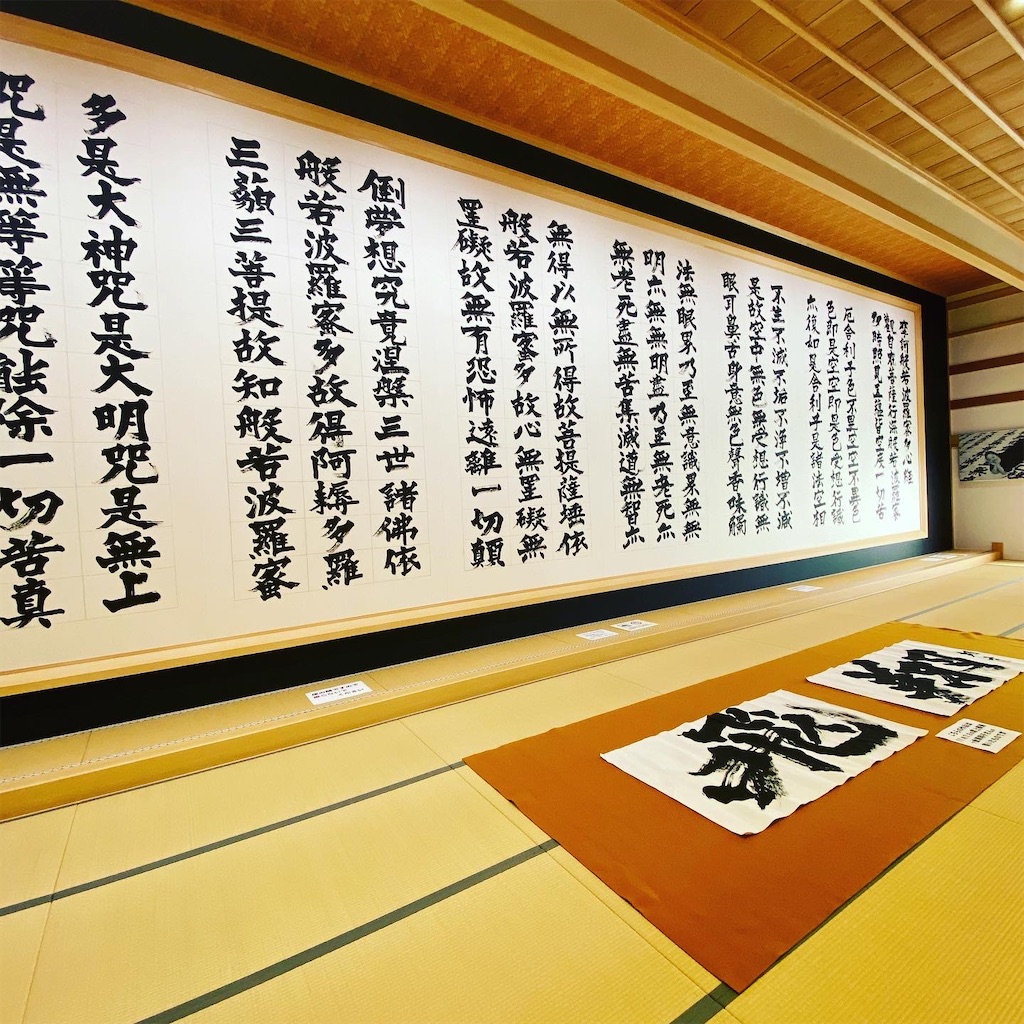 摩訶般若波羅蜜多心経
観自在菩薩行深般若波羅蜜
多時照見五蘊皆空度一切苦
厄舎利子色不異空空不異色
色即是空空即是色受想行識
亦復如是舎利子是諸法空相
不生不滅不垢不浄不増不減
是故空中無色無受想行識無
眼耳鼻舌身意無色聲香味觸
法無眼界乃至無意識界無無
明亦無無明盡乃至無老死亦
無老死盡無苦集滅道無智亦
無得以無所得故菩提薩埵依
般若波羅蜜多故心無罣礙無
罣礙故無有恐怖遠離一切顛
倒夢想究竟涅槃三世諸佛依
般若波羅蜜多故得阿耨多羅
三藐三菩提故知般若波羅蜜
多是大神咒是大明咒是無上
咒是無等等咒能除一切苦真